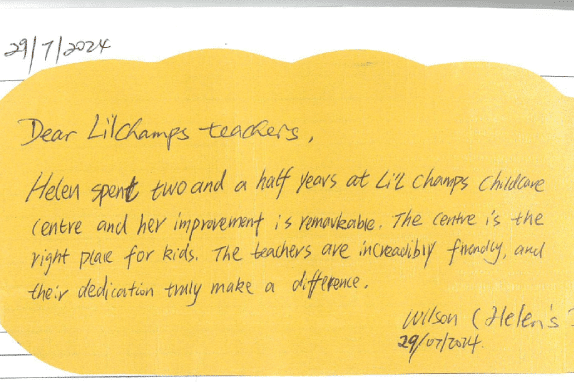 29/7/2024
Dear Li'lChamps teachers,
Helen spent two and a half years at Li'l Champs Childcare
centre and her improvement is remarkable. The centre is the
right place for kids. The teachers are increadibly friendly, and
their dedication truly make a difference.
Wilson (Helen's
29/07/2024.